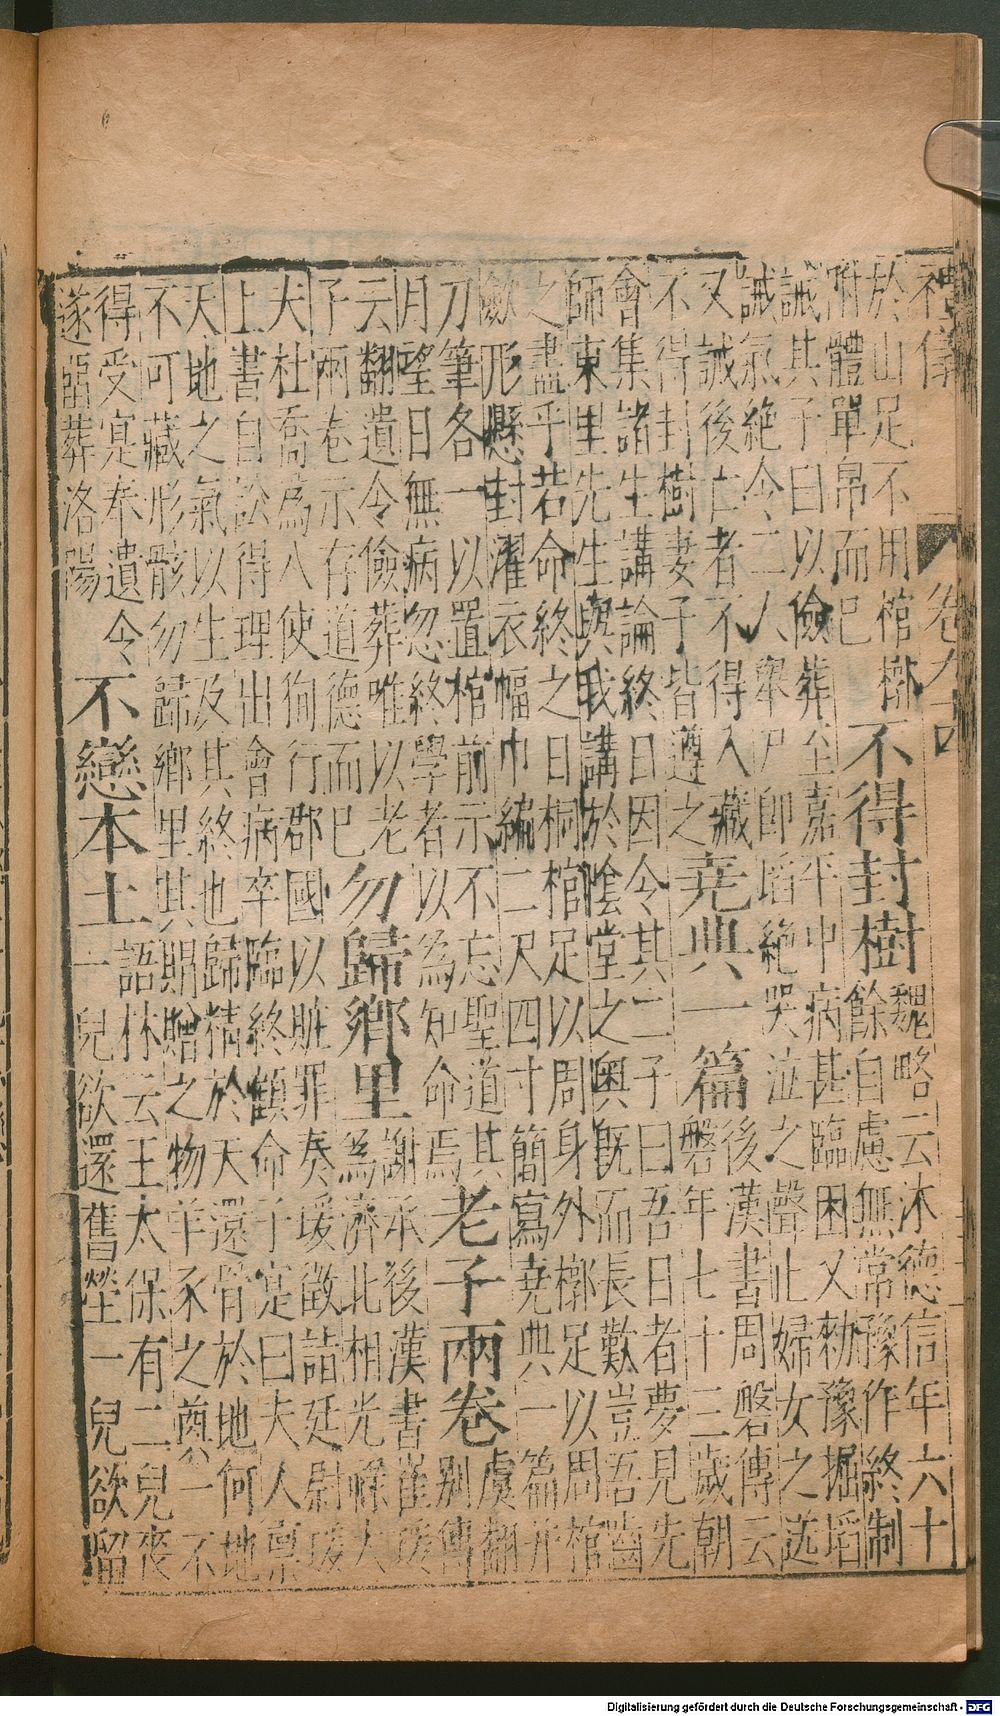 禮儀 卷九十
於山足不用棺槨
附體單帛而已
不得封樹
魏略云沐德信年六十
餘自慮無常豫作終制
誡其子曰以儉葬至嘉平中病甚臨困又勑豫掘埳
誡氣絶令二人舉尸即埳絶哭泣之聲止婦女之送
又誡後亡者不得入藏
不得封樹妻子皆遵之
堯典一篇
後漢書周磐傳云
磐年七十三歲朝
會集諸生講論終日因令其二子曰吾日者夢見先
師東里先生與我講於陰堂之奧既而長歎豈吾齒
之盡乎若命終之日桐棺足以周身外槨足以周棺
斂形懸封濯衣幅巾編二尺四寸簡寫堯典一篇并
刀筆各一以置棺前示不忘聖道其
月望日無病忽終學者以為知命焉
老子兩卷
虞翻
別傳
云翻遺令儉葬唯以老
子兩卷示存道德而已
勿歸鄉里
謝承後漢書崔瑗
為濟北相光祿大
夫杜喬為八使狥行郡國以贓罪奏瑗徵詣廷尉瑗
上書自訟得理出會病卒臨終顧命子寔曰夫人稟
天地之氣以生及其終也歸精於天還骨於地何地
不可藏形骸勿歸鄉里其賵贈之物羊豕之奠一不
得受寔奉遺令
遂留葬洛陽
不戀本土
語林云王太保有二兒喪
一兒欲還舊塋一兒欲留
Digitalisierung gefördert durch die Deutsche Forschungsgemeinschaft - DFG